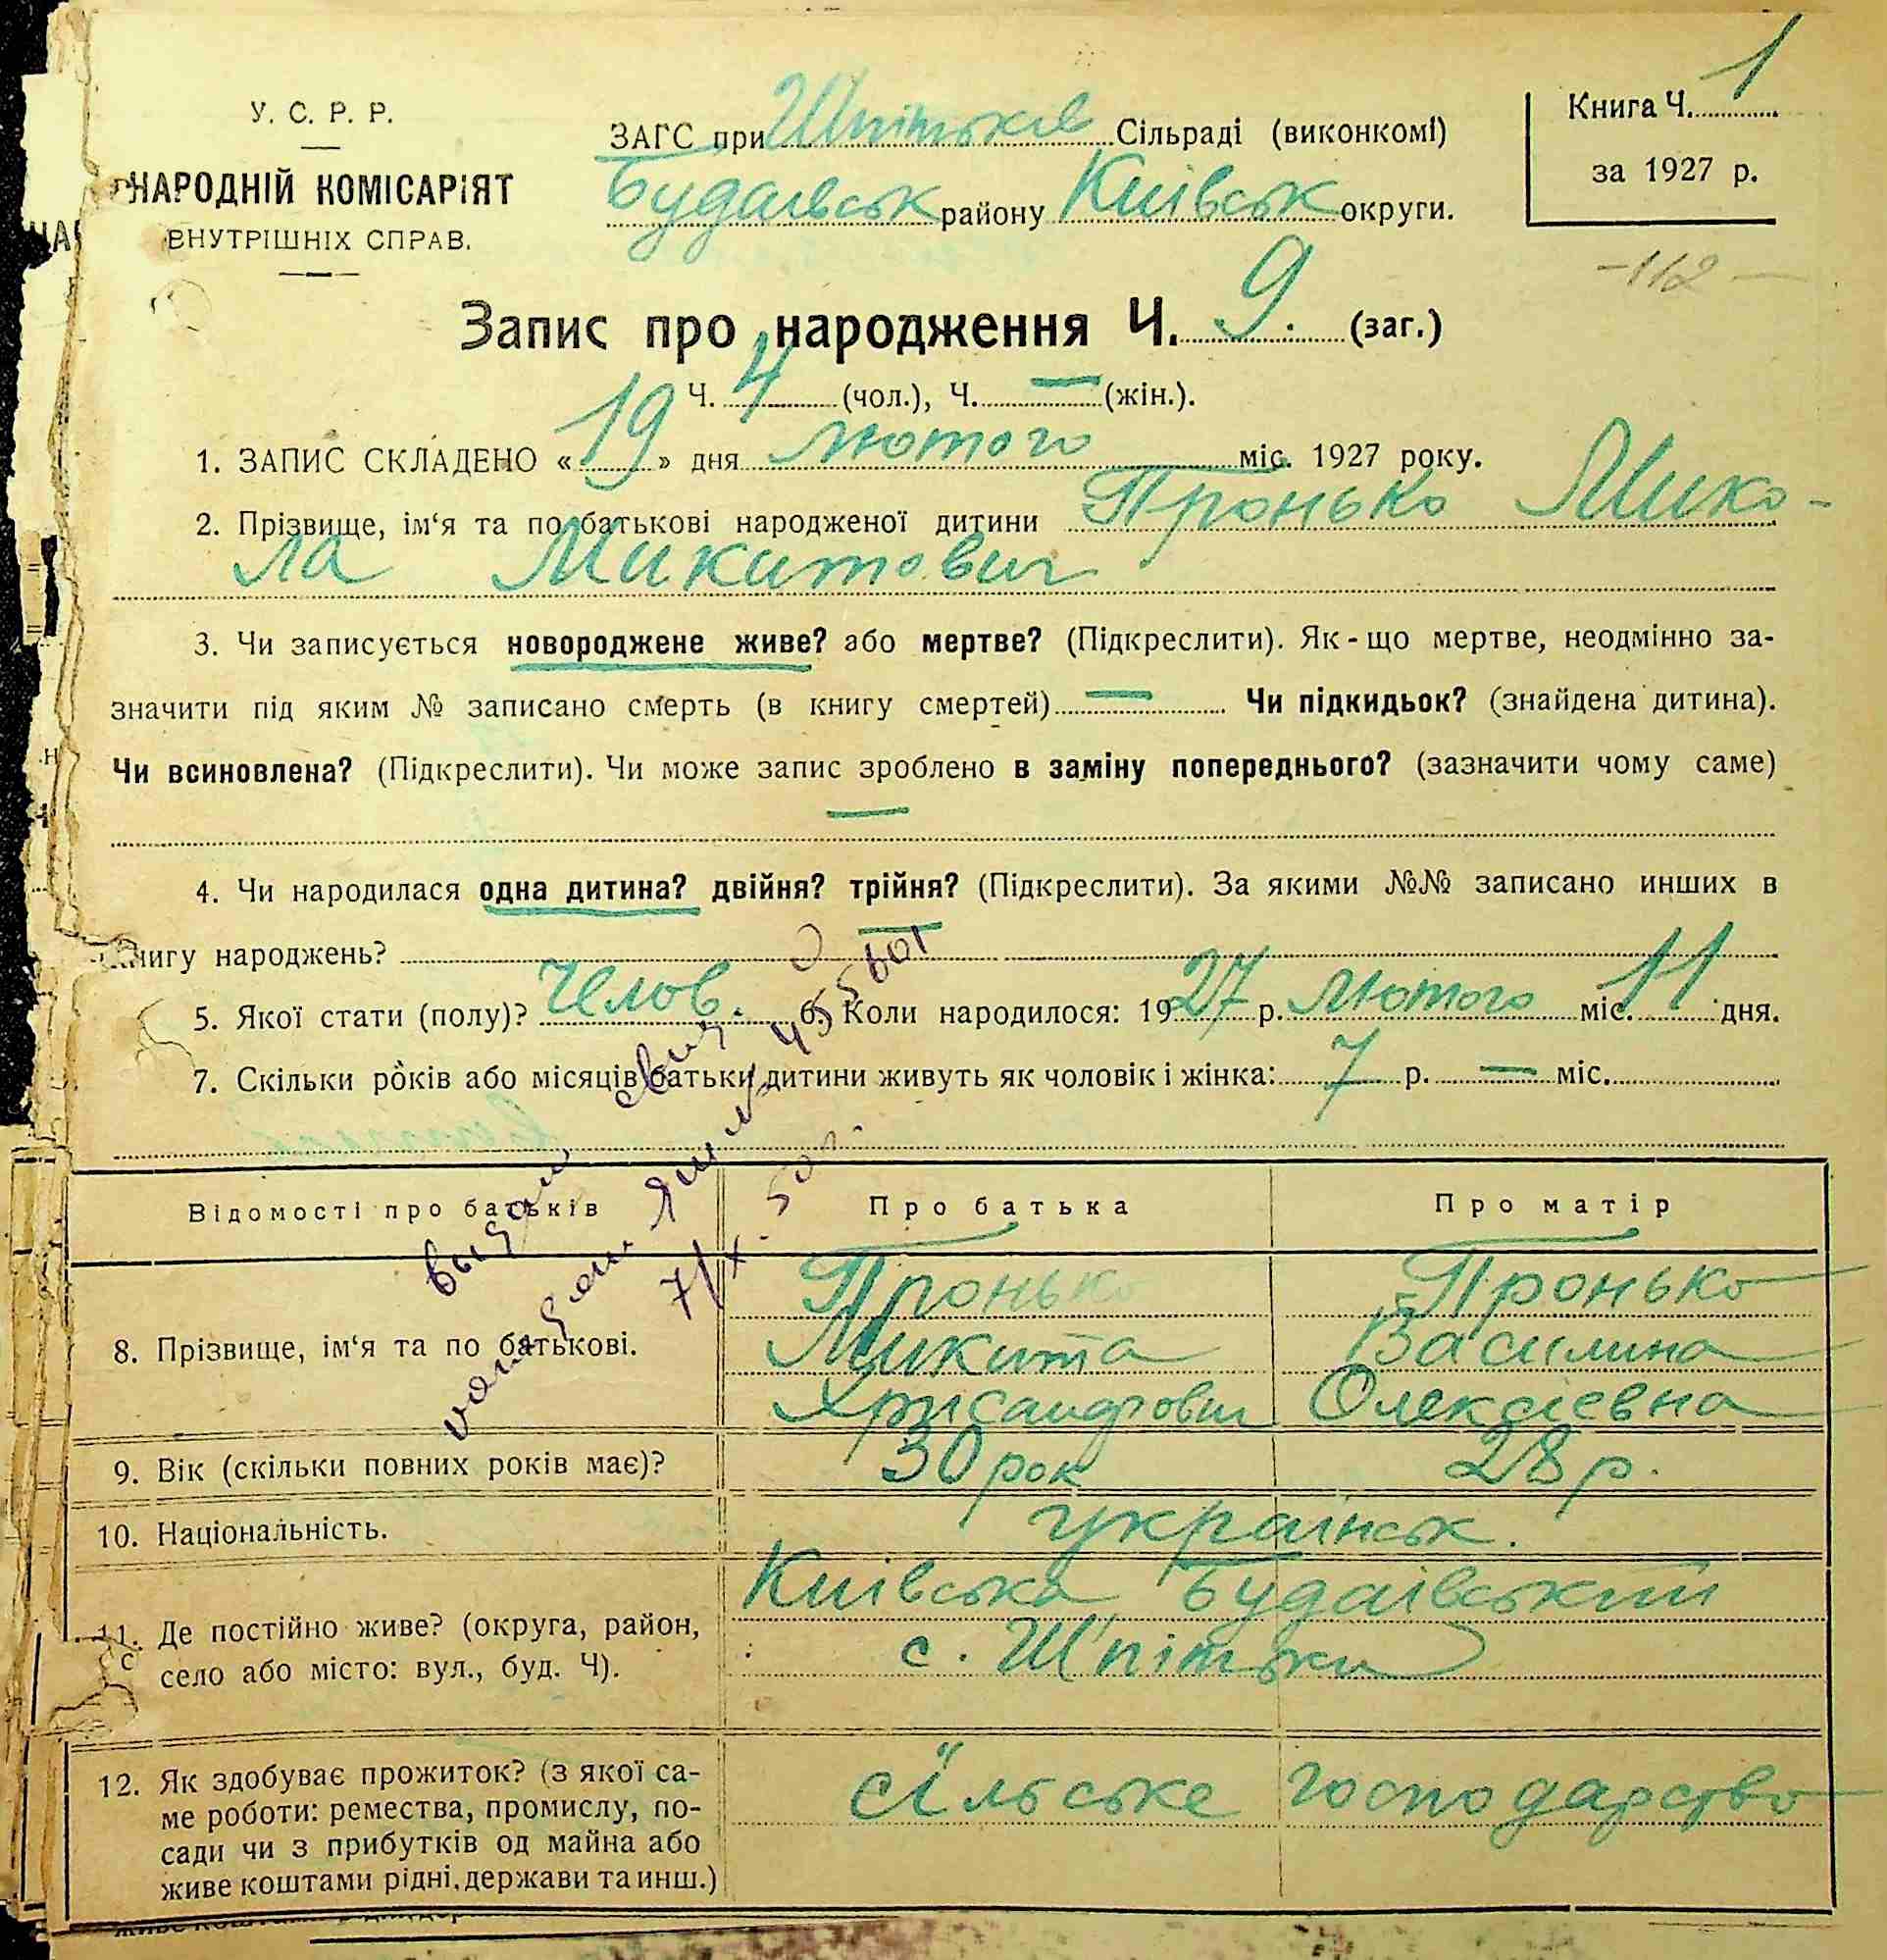 У. С. Р. Р.
НАРОДНІЙ КОМІСАРІЯТ
ВНУТРІШНІХ СПРАВ.
ЗАГС при Шпітьків Сільраді (виконкомі)
Будаївськ району Київськ округи.
Книга Ч. 1
за 1927 р.
-112-
Запис про народження Ч. 9. (заг.)
Ч. 4 (чол.), Ч. — (жін.).
1. ЗАПИС СКЛАДЕНО « 19 » дня лютого міс. 1927 року.
2. Прізвище, ім‘я та по батькові народженої дитини Пронько Мико-
ла Микитович
3. Чи записується новороджене живе? або мертве? (Підкреслити). Як-що мертве, неодмінно за-
значити під яким № записано смерть (в книгу смертей) — Чи підкидьок? (знайдена дитина).
Чи всиновлена? (Підкреслити). Чи може запис зроблено в заміну попереднього? (зазначити чому саме)
—
4. Чи народилася одна дитина? двійня? трійня? (Підкреслити). За якими №№ записано инших в
книгу народжень? —
5. Якої стати (полу)? Челов. 6. Коли народилося: 1927 р. Лютого міс. 11 дня.
7. Скільки років або місяців батьки дитини живуть як чоловік і жінка: 7 р. — міс.
Відомості про батьків Про батька Про матір
8. Прізвище, ім‘я та по батькові.
Пронько
Микита
Хрисандрович
Пронько
Василина
Олексієвна
9. Вік (скільки повних років має)? 30 рок 28 р.
10. Національність. українськ.
11. Де постійно живе? (округа, район,
село або місто: вул., буд. Ч).
Київська Будаївський
с. Шпітьки
12. Як здобуває прожиток? (з якої са-
ме роботи: ремества, промислу, по-
сади чи з прибутків од майна або
живе коштами рідні, держави та инш.)
сільське господарство